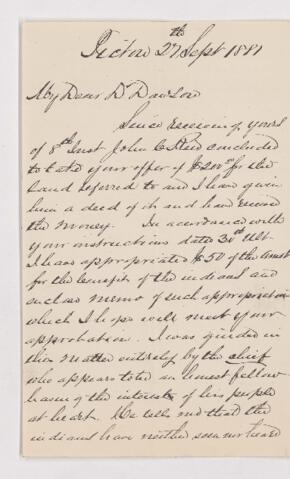 Pictou 27th Sept 1881
My Dear Dr Dawson
Since receiving yours
of 8th Inst John C Reid concluded
to take your offer of $200 for the
land referred to and I have given
him a deed of it and have received
the money. In accordance with
your instructions dated 30th Ult.
I have appropriated $50 of the amt
for the benefit of the indians and
enclose memo of such appropriation
which I hope will meet your
approbation. I was guided in
this matter entirely by the chief
who appears to be an honest fellow
having the interests of his people
at heart. He tells me that the
indians have neither seen nor heard